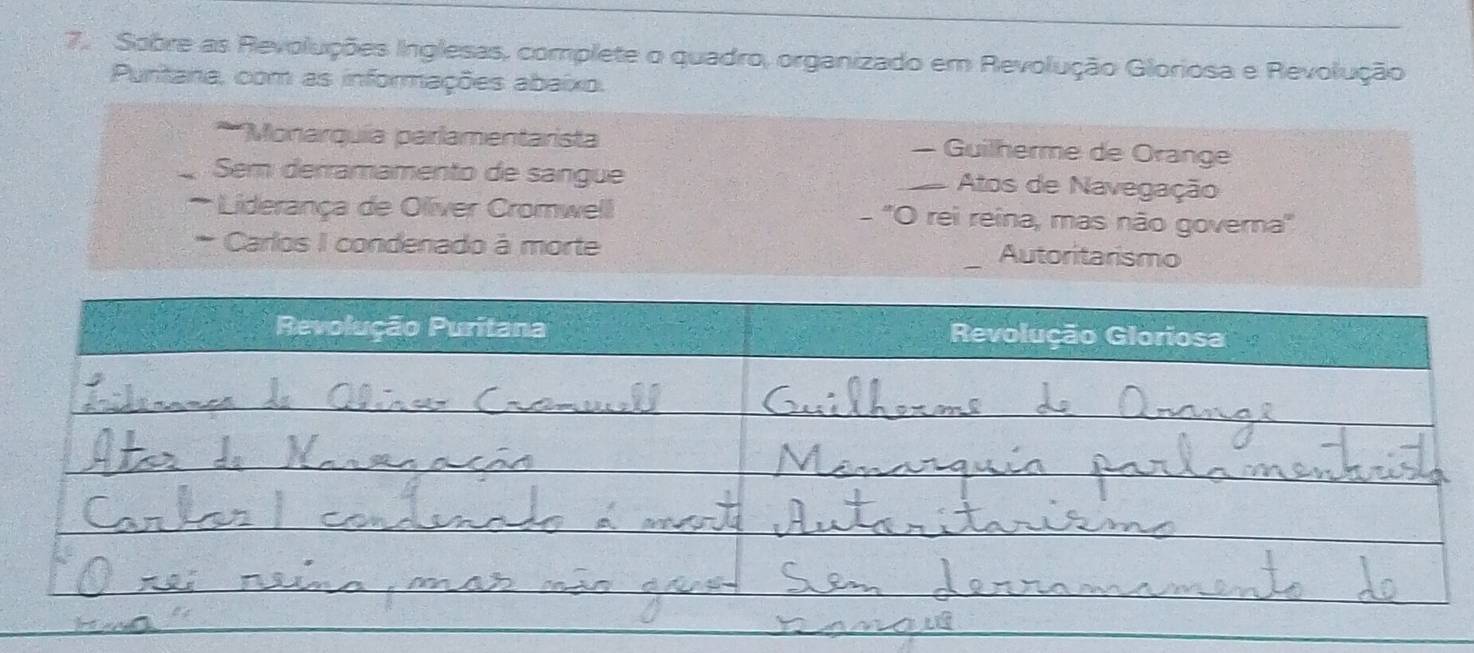 7. Sobre as Revoluções Inglesas, complete o quadro, organizado em Revolução Gloriosa e Revolução
Puritana, com as informações abaixo.
Monarquia parlamentarista
Sem derramamento de sangue
Liderança de Oliver Cromwell
Carlos I condenado à morte
Guilherme de Orange
Atos de Navegação
"O rei reina, mas não governa"
Autoritarismo
Revolução Puritana
Revolução Gloriosa
Liderança de Oliver Cromwell
Guilherme de Orange
Atos de Navegação
Monarquia parlamentarista
Carlos I condenado à mort
Autoritarismo
"O rei reina, mas não gover
Sem derramamento de
na"
sangue